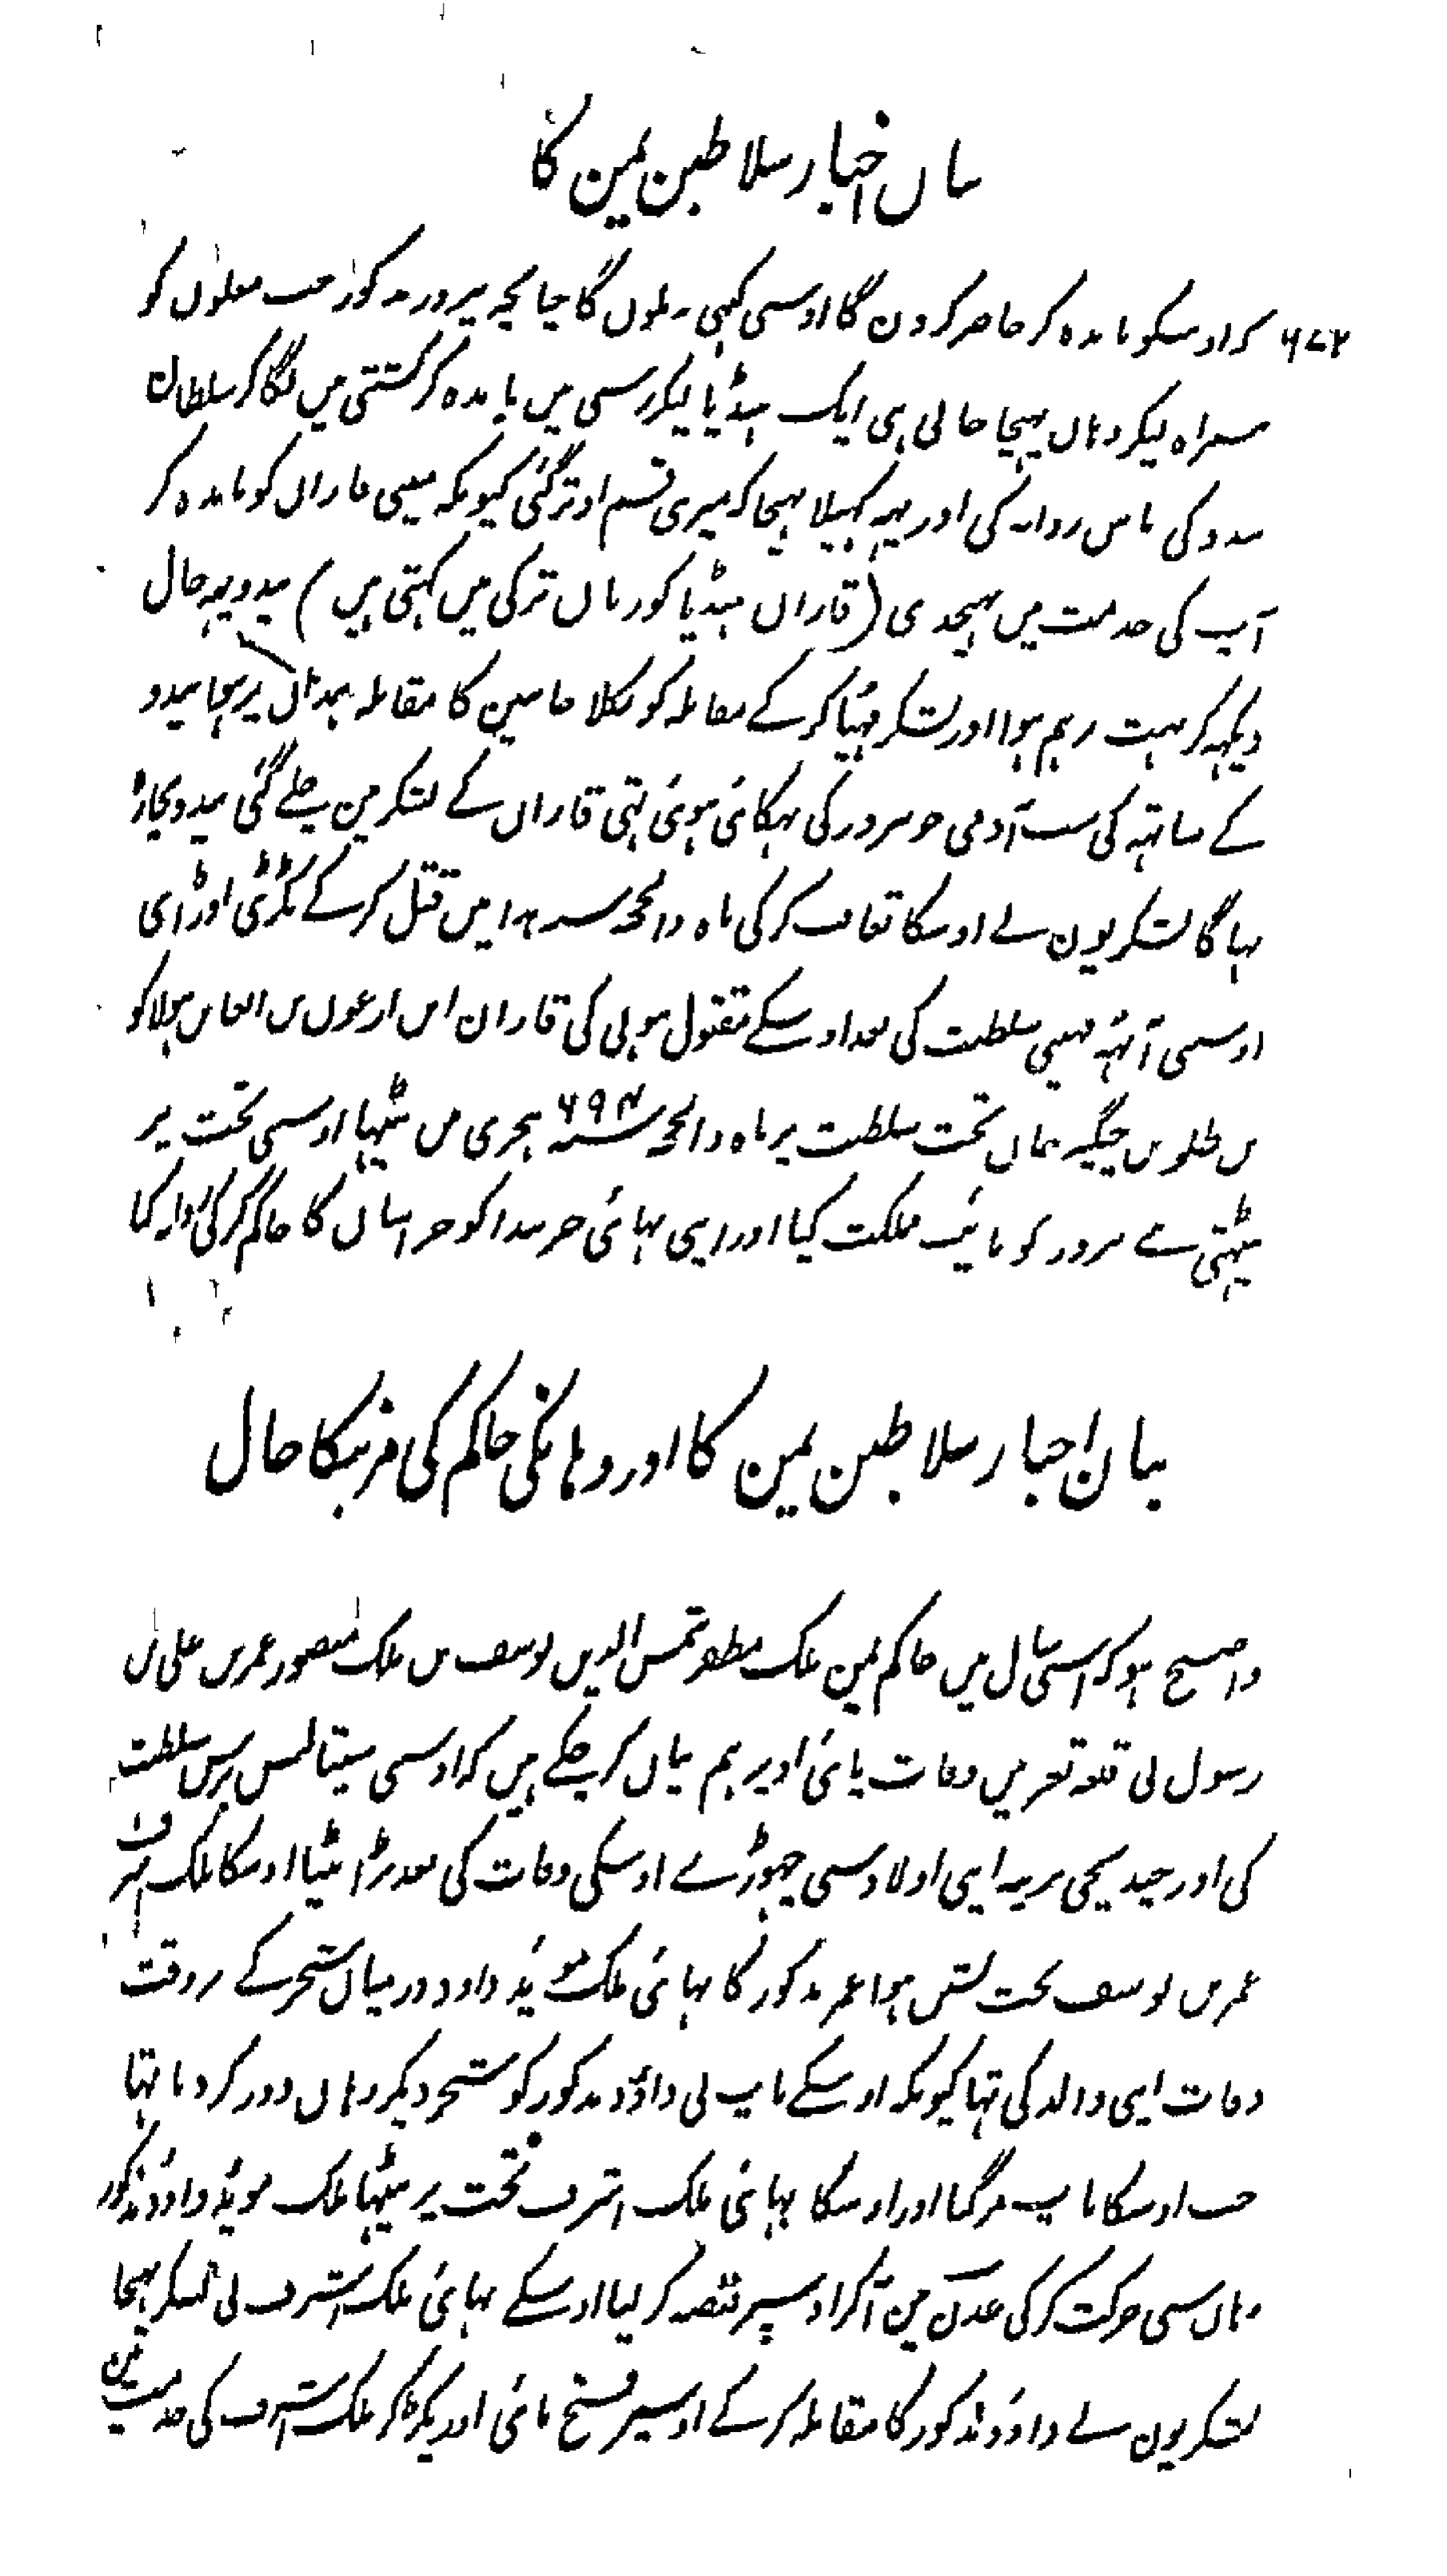 بیان اخبار سلاطین یمن کا
۶۷۲ کہ اوسکو باندہ کر حاضر کر دن گا اوسی کبہی نہ ملوں گا چنانچہ نیرور مذکور جب مغلوں کو
ہمراہ لیکر وہاں پہنچا حالی ہی ایک ہنڈیا لیکر رسی میں باندہ کر کشتی میں لگا کر سلطان
بیدو کی پاس روانہ کی اور یہہ کہیلا بہیجا کہ میری قسم اوتر گئی کیونکہ مینی قازان کو باندہ کر
آپ کی خدمت میں بہیجدی (قازان ہنڈیا کو زبان ترکی میں کہتی ہیں) بیدو یہہ حال
دیکہہ کر بہت برہم ہوا اور لشکر مہیا کر کے مقابلہ کو نکلا جانبین کا مقابلہ ہمدان پر ہوا بیدو
کے ساتہہ کی سب آدمی جو نیروز کی بہکائی ہوئی تہی قازان کے لشکر مین چلے گئی بیدو بچارہ
بہاگا لشکریون نے اوسکا تعاقب کر کی ماہ ذالحجہ سنہ ہذا میں قتل کر کے ٹکڑی اوڑا دی
اوسی آٹہہ مہینی سلطنت کی بعد اوسکے مقتول ہونی کی قازان ابن ارغون بن ابغا بن ہلاکو
بن طلو بن چنگیز خان تخت سلطنت پر ماہ ذالحجہ سنہ ۶۹۴ ہجری میں بیٹہا اوسی تخت پر
بیٹہتی ہے نیروز کو نایب مملکت کیا اور اپنی بہائی خربندا کو خراسان کا حاکم کر کی روانہ کیا
بیان اخبار سلاطین یمن کا اور وہانکی حاکم کی مرنیکا حال
واضح ہو کہ اسی سال میں حاکم یمن ملک مظفر شمس الدین یوسف بن ملک منصور عمر بن علی بن
رسول نی قلعہ تعز میں وفات پائی اوپر ہم بیان کر چکے ہیں کہ اوسی سینتالیس برس سلطنت
کی اور چند بیٹی نرینہ اپنی اولاد سی چہوڑے اوسکی وفات کی بعد بڑا بیٹا اوسکا ملک اشرف
عمر بن یوسف تخت نشین ہوا عمر مذکور کا بہائی ملک موئید داود درمیان شحر کے بروقت
وفات اپنی والد کی تہا کیونکہ اوسکے باپ نی داؤد مذکور کو شحر دیکر وہاں دور کر دیا تہا
جب اوسکا باپ مر گیا اور اوسکا بہائی ملک اشرف تخت پر بیٹہا ملک موئید داؤد مذکور
وہاں سی حرکت کر کی عدن مین آ کر اوسپر قبضہ کر لیا اوسکے بہائی ملک اشرف نی لشکر بہیجا
لشکریون نے داؤد مذکور کا مقابلہ کر کے اوسپر فتح پائی اور پکڑ کر ملک اشرف کی خدمت مین